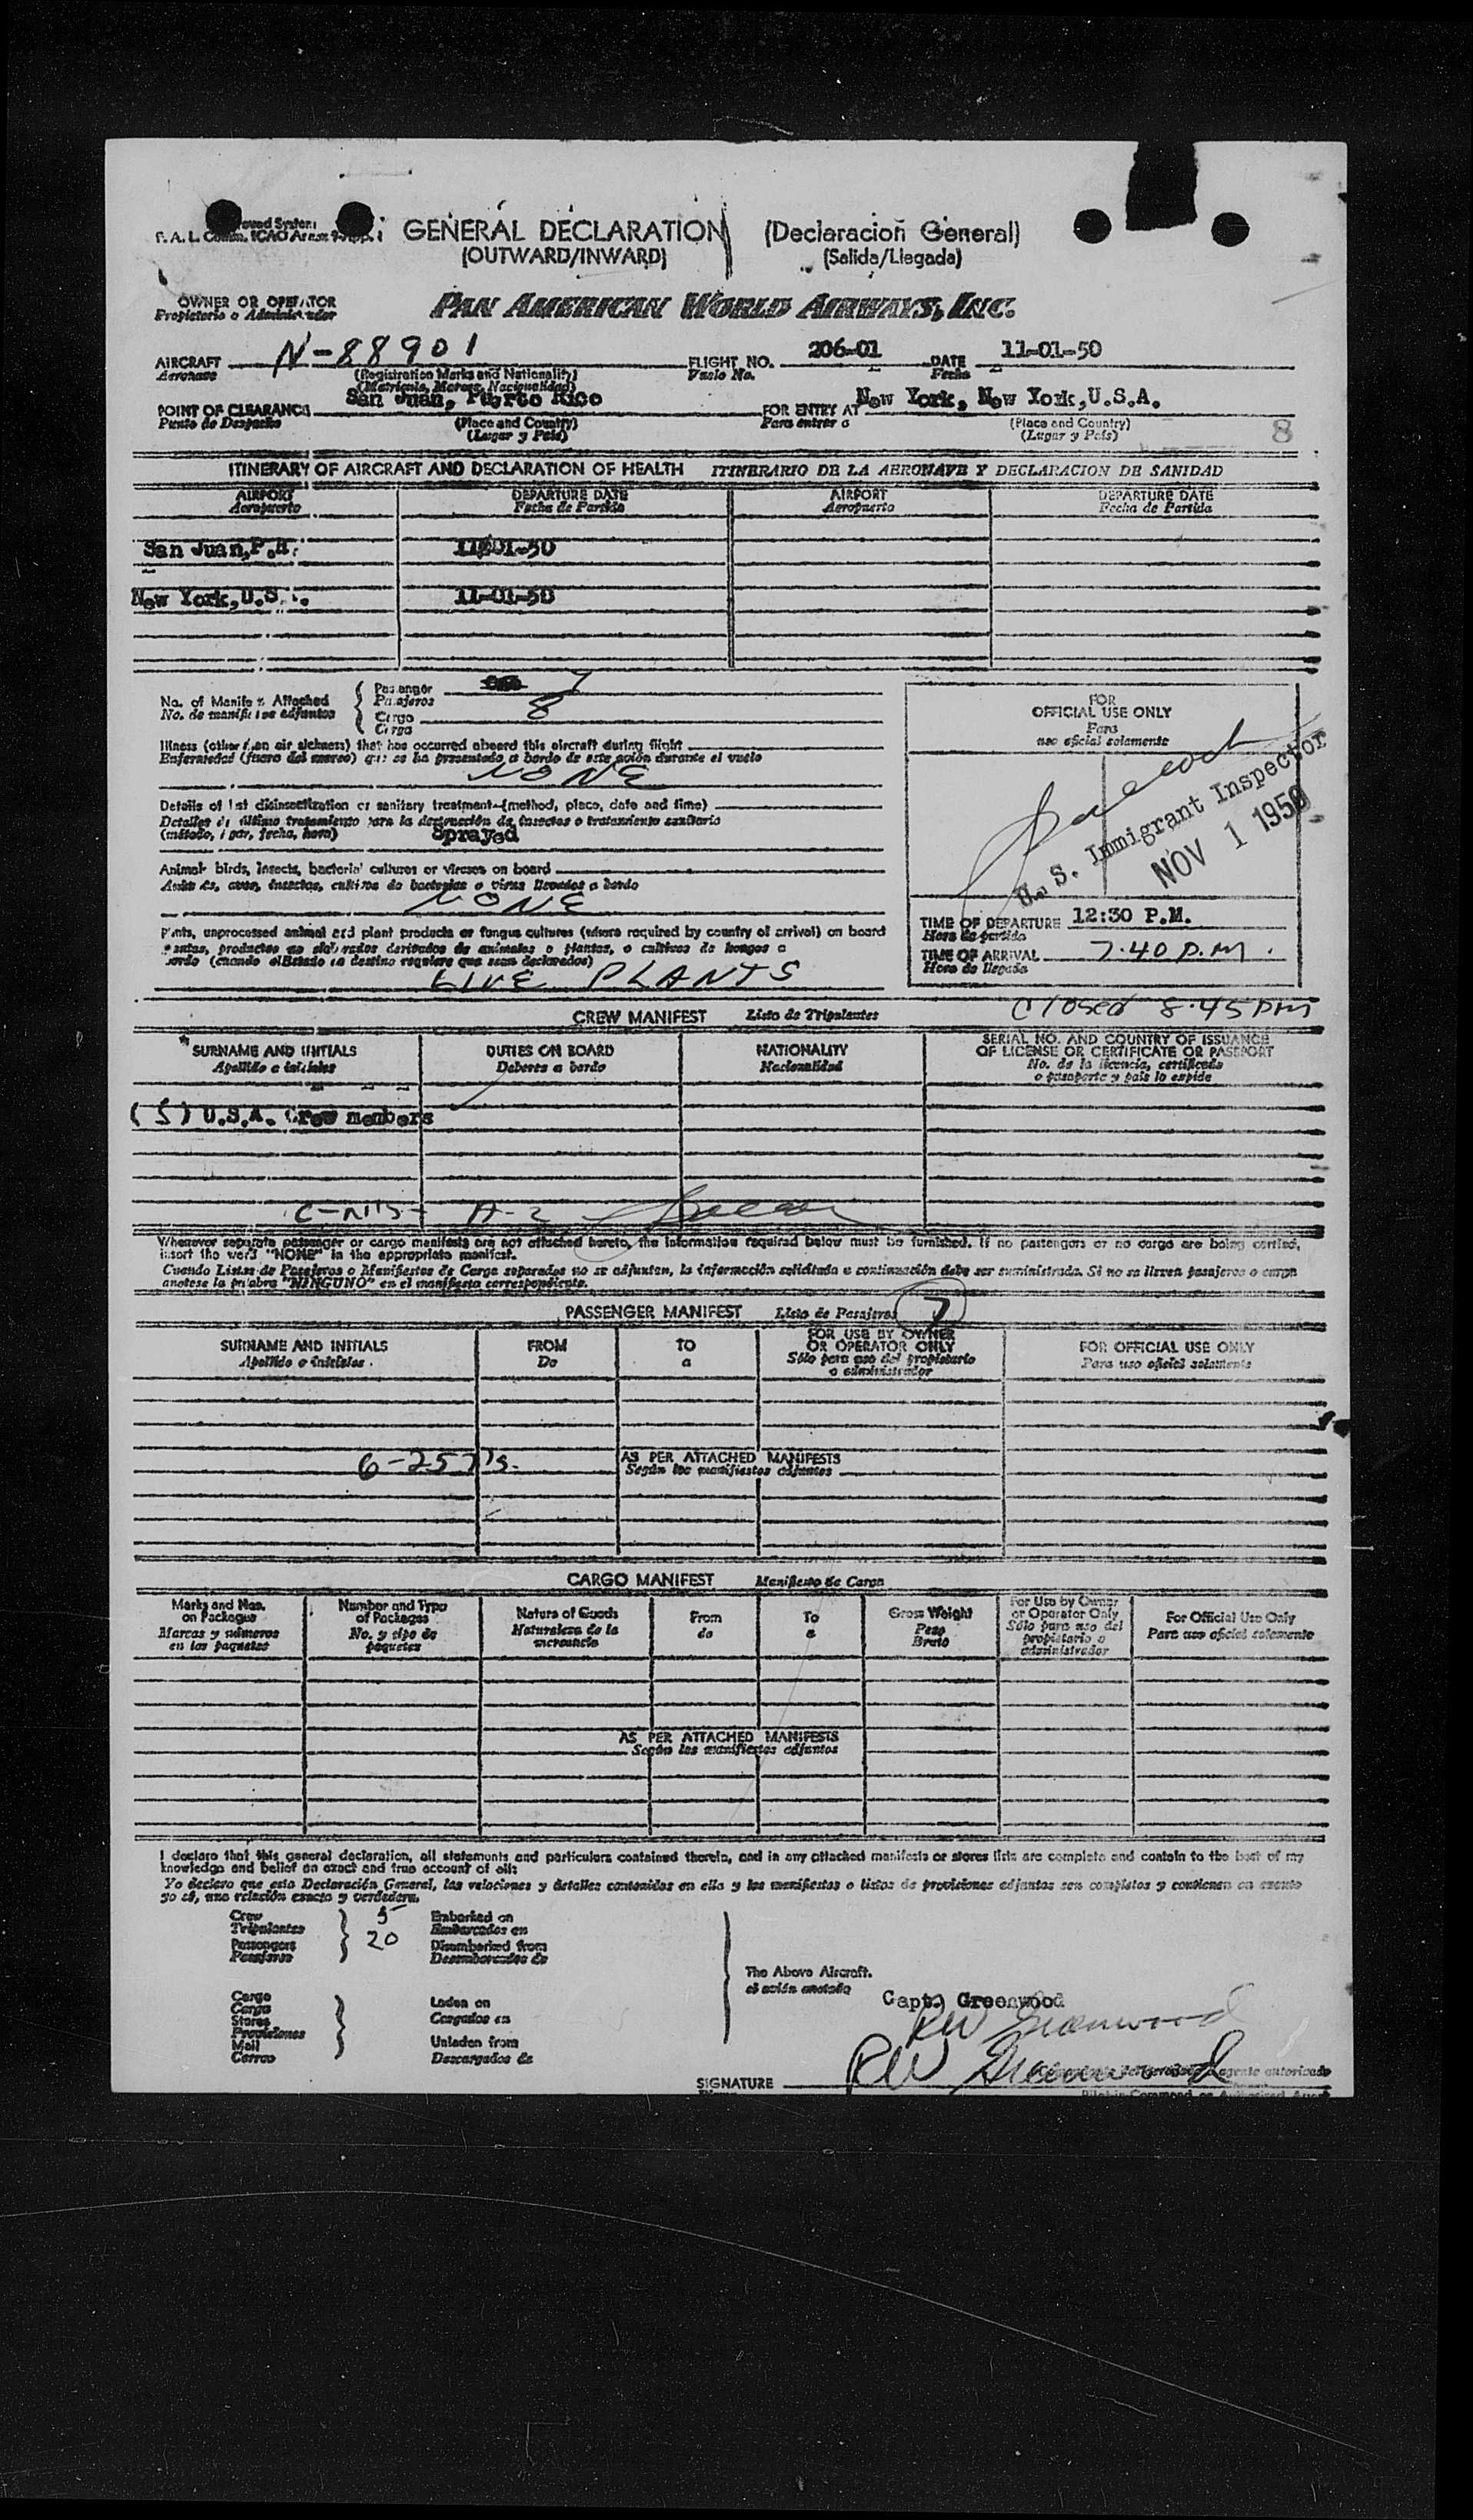 GENERAL DECLARATION (Declaración General)
(OUTWARD/INWARD) (Salida/Llegada)
OWNER OR OPERATOR
Propietario o Administrador
PAN AMERICAN WORLD AIRWAYS, INC.
AIRCRAFT N-88901 FLIGHT NO. 206-01 DATE 11-01-50
Aeronave (Registration Marks and Nationality) Vuelo No. Fecha
(Matricula, Marcas, Nacionalidad)
POINT OF CLEARANCE San Juan, Puerto Rico FOR ENTRY AT New York, New York, U.S.A.
Punto de Despacho (Place and Country) Para entrar a (Place and Country)
(Lugar y País) (Lugar y País) 8
ITINERARY OF AIRCRAFT AND DECLARATION OF HEALTH ITINERARIO DE LA AERONAVE Y DECLARACION DE SANIDAD
AIRPORT DEPARTURE DATE AIRPORT DEPARTURE DATE
Aeropuerto Fecha de Partida Aeropuerto Fecha de Partida
San Juan, P.R. 11-01-50
New York, U.S. 11-01-50
No. of Manifests Attached Passenger 7
No. de manifiestos adjuntos Pasajeros
Cargo 8
Carga
Illness (other than air sickness) that has occurred aboard this aircraft during flight
Enfermedad (fuera del mareo) que se ha presentado a bordo de este avión durante el vuelo
NONE
Details of last disinsectization or sanitary treatment (method, place, date and time)
Detalles de último tratamiento para la destrucción de insectos o tratamiento sanitario
(método, lugar, fecha, hora) Sprayed
Animals, birds, insects, bacterial cultures or viruses on board
Animales, aves, insectos, cultivos de bacterias o virus llevados a bordo
NONE
Plants, unprocessed animal and plant products or fungus cultures (where required by country of arrival) on board
Plantas, productos no elaborados derivados de animales o plantas, o cultivos de hongos a
bordo (cuando el Estado de destino requiere que sean declarados)
LIVE PLANTS
FOR
OFFICIAL USE ONLY
Para
uso oficial solamente
U. S. Immigrant Inspector
NOV 1 1950
TIME OF DEPARTURE 12:30 P.M.
Hora de partida
TIME OF ARRIVAL 7.40 P.M.
Hora de llegada
Closed 8.45 PM
CREW MANIFEST Lista de Tripulantes
SURNAME AND INITIALS DUTIES ON BOARD NATIONALITY SERIAL NO. AND COUNTRY OF ISSUANCE
OF LICENSE OR CERTIFICATE OR PASSPORT
Apellido e iniciales Deberes a bordo Nacionalidad No. de la licencia, certificado
o pasaporte y país lo expide
(5) U.S.A. Crew members
Whenever separate passenger or cargo manifests are not attached hereto, the information required below must be furnished. If no passengers or no cargo are being carried,
insert the word "NONE" in the appropriate manifest.
Cuando Listas de Pasajeros o Manifiestos de Carga separados no se adjuntan, la información solicitada a continuación debe ser suministrada. Si no se llevan pasajeros o carga
anotese la palabra "NINGUNO" en el manifiesto correspondiente.
PASSENGER MANIFEST Lista de Pasajeros 7
SURNAME AND INITIALS FROM TO FOR USE BY OWNER
OR OPERATOR ONLY FOR OFFICIAL USE ONLY
Apellido e iniciales De a Sólo para uso del propietario
o administrador Para uso oficial solamente
AS PER ATTACHED MANIFESTS
Según los manifiestos adjuntos
CARGO MANIFEST Manifiesto de Carga
Marks and Nos.
on Packages
Marcas y números
en los paquetes
Number and Type
of Packages
No. y tipo de
paquetes
Nature of Goods
Naturaleza de la
mercancía
From
de
To
a
Gross Weight
Peso
Bruto
For Use by Owner
or Operator Only
Sólo para uso del
propietario o
administrador
For Official Use Only
Para uso oficial solamente
AS PER ATTACHED MANIFESTS
Según los manifiestos adjuntos
I declare that this general declaration, all statements and particulars contained therein, and in any attached manifests or stores lists are complete and contain to the best of my
knowledge and belief an exact and true account of all:
Yo declaro que esta Declaración General, las relaciones y detalles contenidos en ella y los manifiestos o listas de provisiones adjuntos son completos y contienen en cuanto
yo sé, una relación exacta y verdadera.
Crew 5 Embarked on
Tripulantes Embarcados en
Passengers 20 Disembarked from
Pasajeros Desembarcados de
The Above Aircraft.
el avión anotado
Cargo
Carga
Stores
Provisiones
Mail
Correo
Laden on
Cargados en
Unladen from
Descargados de
Capt. Greenwood
RW Greenwood
SIGNATURE RW Greenwood